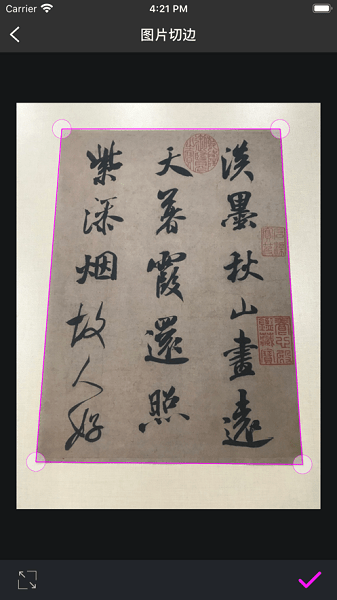 Carrier
4:21 PM
图片切边
淡墨秋山畫遠
天暮霞還照
紫添烟故人好